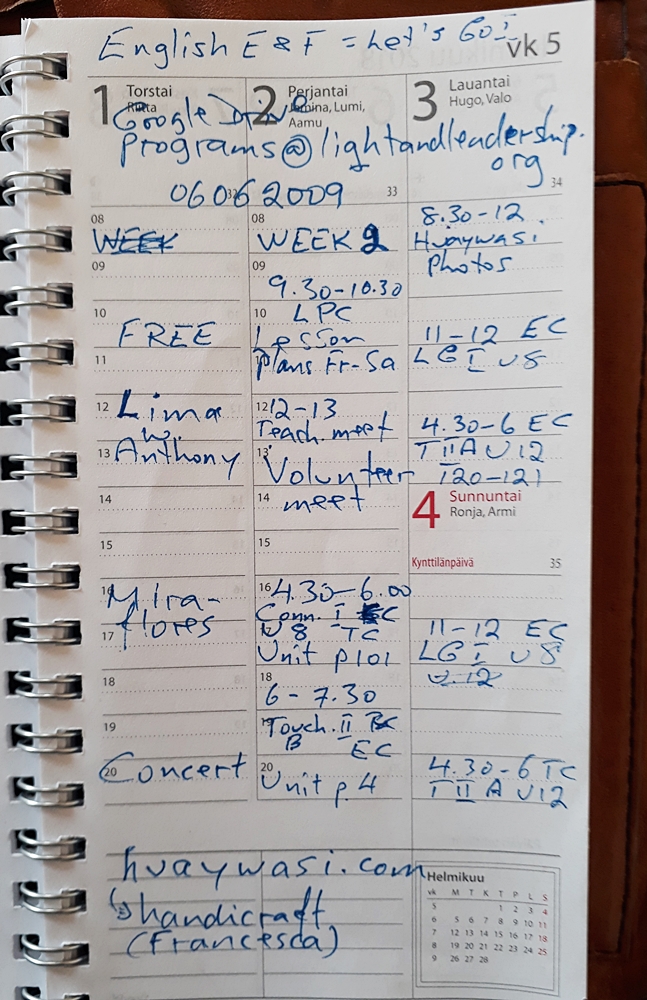 English E & F = Let's Go!
vk 5
1 Torstai
Riitta
2 Perjantai
Jemina, Lumi,
Aamu
3 Lauantai
Hugo, Valo
Google Drive
programs@lightandleadership.
org
06062009
32
33
34
08
WEEK
09
10
FREE
11
12 Lima
w.
13 Anthony
14
15
16 Mira-
flores
17
18
19
20 Concert
08
WEEK 2
09
9.30-10.30
10 LPC
Lesson
11 Plans Fr-Sa
12 12-13
Teach. meet
13 Volunteer
14 meet
15
16 4.30-6.00
Conn. I EC
U 8 TC
17
Unit p101
18
6-7.30
19 Touch. II BC
B EC
20
Unit p. 4
8.30-12.
Huaywasi
Photos
11-12 EC
LG I U8
4.30-6 EC
T II A U12
120-121
4 Sunnuntai
Ronja, Armi
Kynttilänpäivä 35
11-12 EC
LG I U8
U.12
4.30-6 TC
T II A U12
huaywasi.com
↳ handicraft
(Francesca)
Helmikuu
vk M T K T P L S
5 1 2 3 4
6 5 6 7 8 9 10 11
7 12 13 14 15 16 17 18
8 19 20 21 22 23 24 25
9 26 27 28